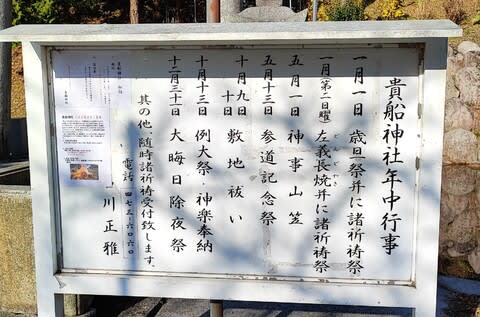 貴船神社年中行事
一月一日 歳旦祭并に諸祈祷祭
一月(第二日曜) 左義長焼并に諸祈祷祭
どんどやき
五月一日 神事山笠
五月十三日 参道記念祭
十月九日 敷地祓い
十月十三日 例大祭・神楽奉納
十二月三十一日 大晦日除夜祭
其の他、随時諸祈祷受付致します。
電話 四七三-六〇六〇
川正雅